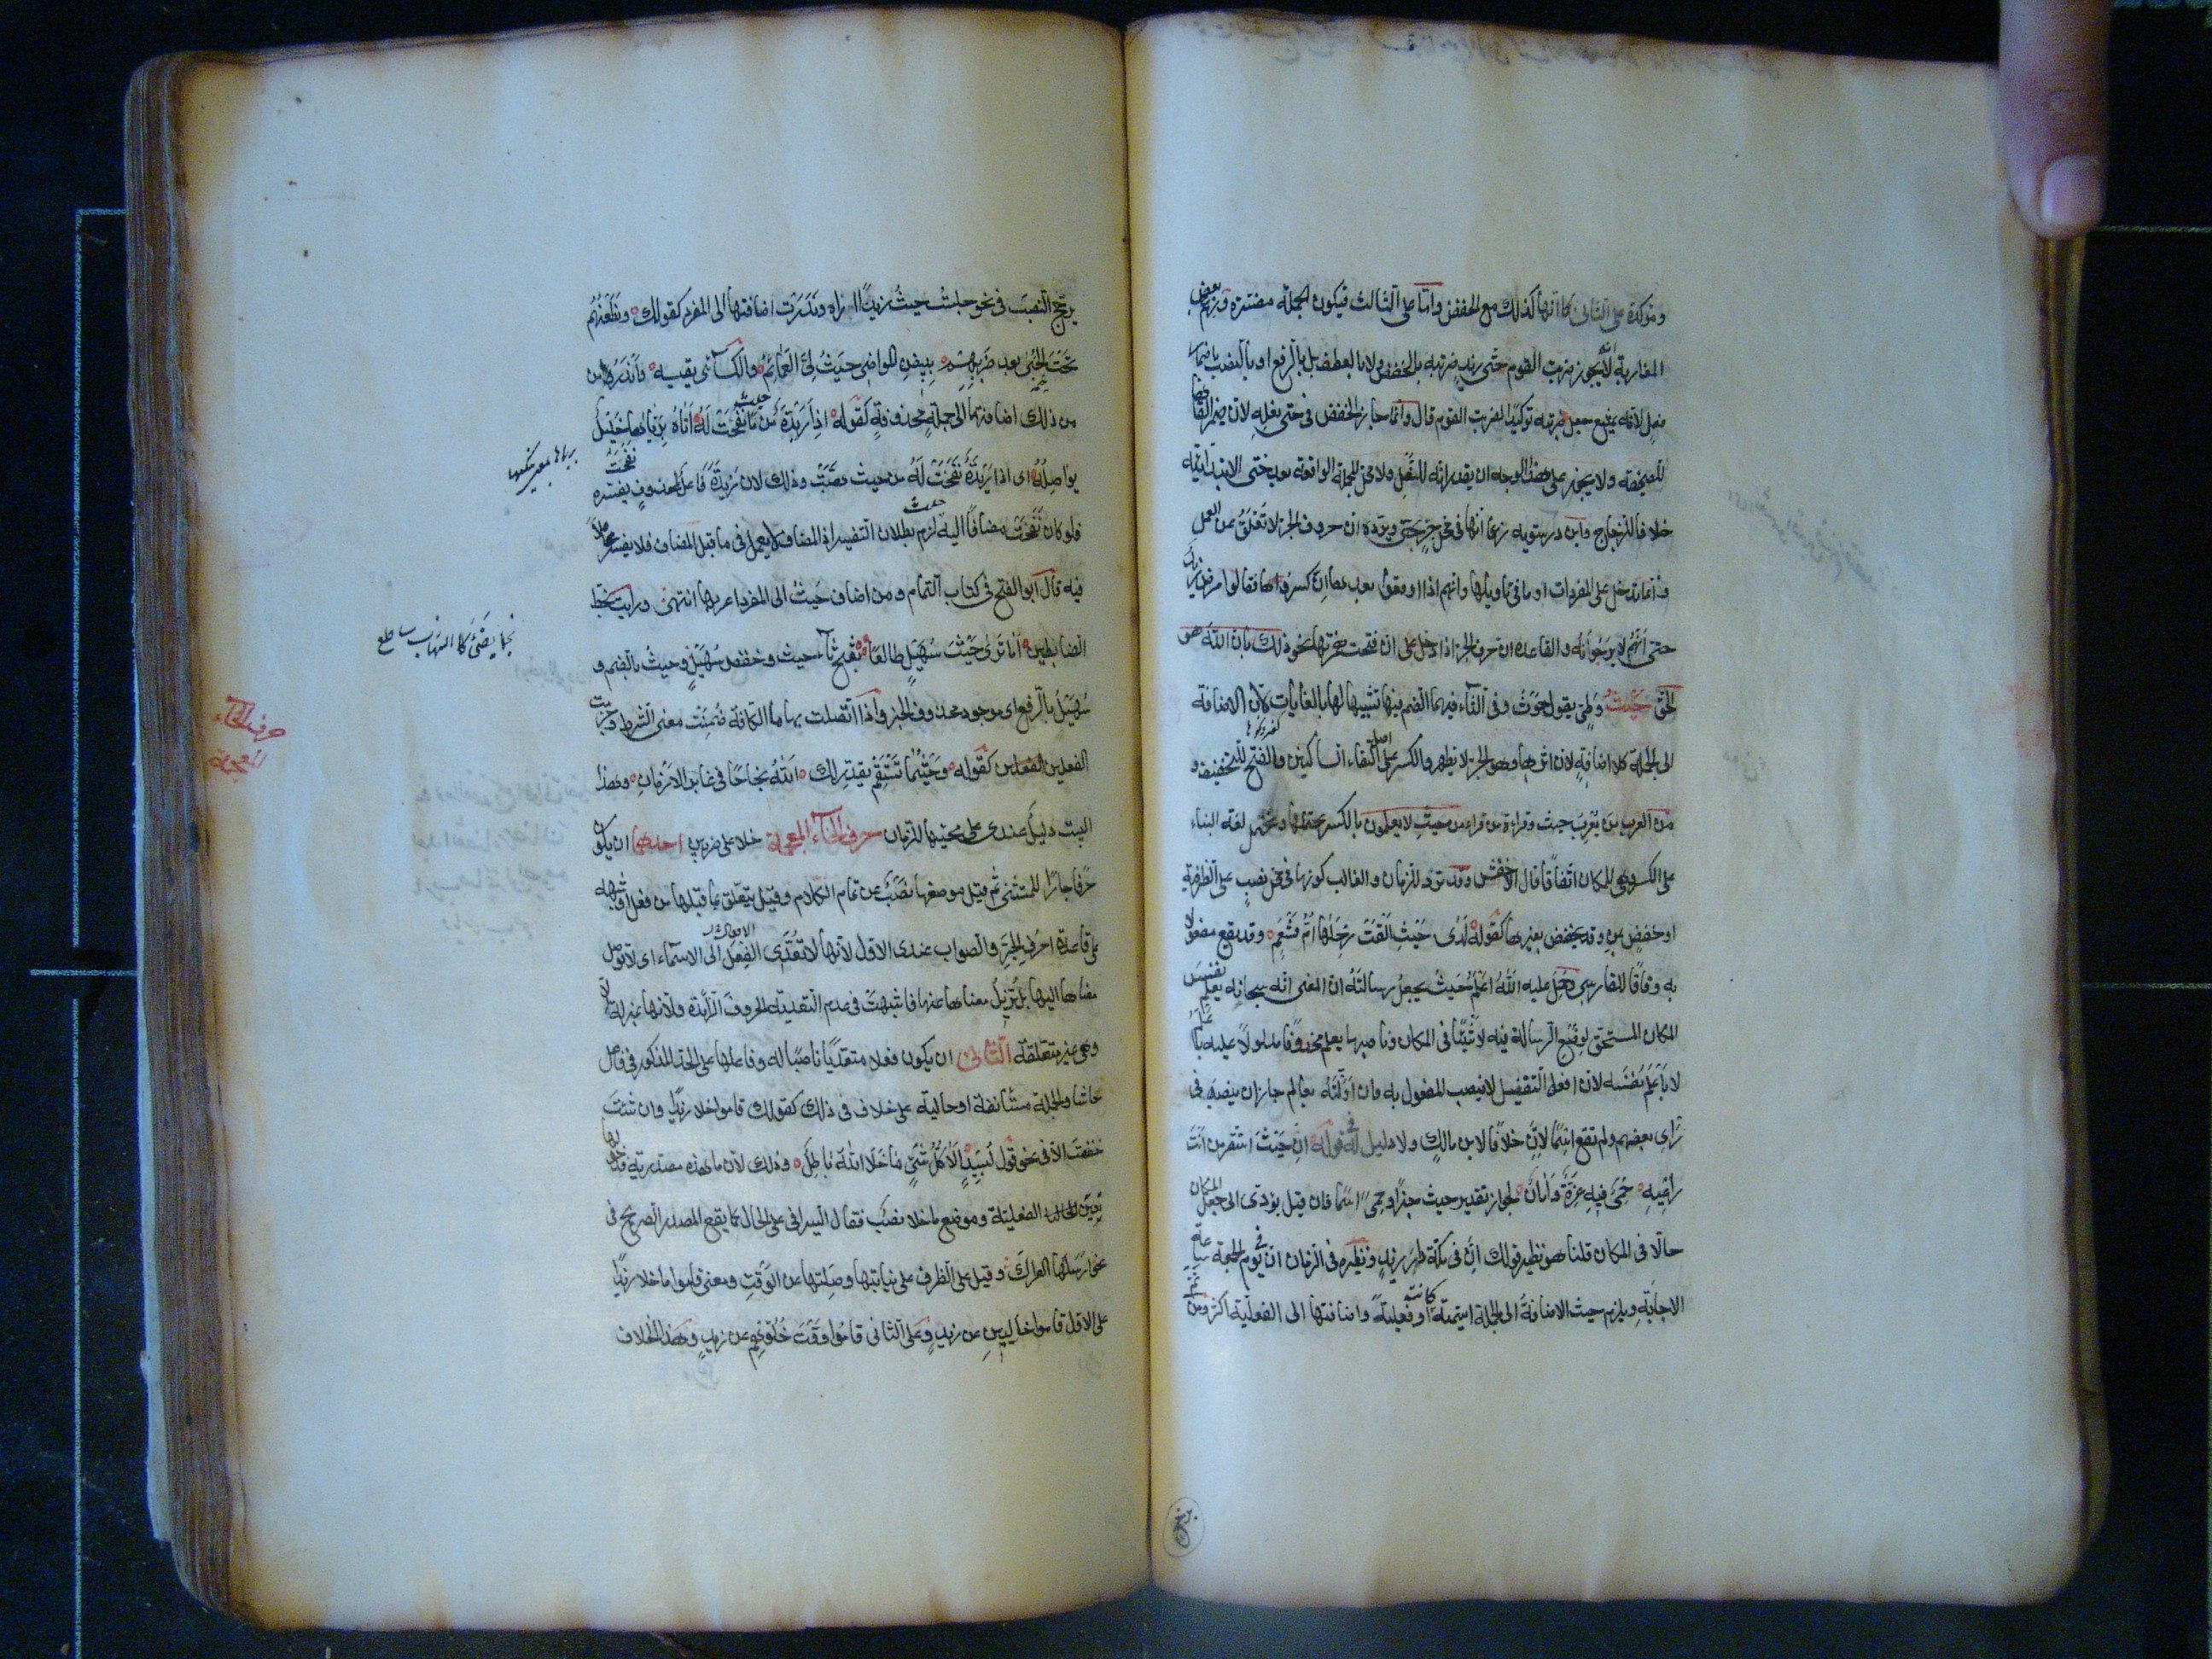 ومؤكدة على الثانى كما انها كذلك مع الخفض واما على الثالث فيكون الجملة مفسرة وزعم بعض
المغاربة انه لا يجوز ضربت القوم حتى زيد ضربته بالخفض ولا بالعطف بل بالرفع او بالنصب باضمار
فعل لانه يمتنع جعل ضربته توكيدا لضربت القوم قال وانما جاز الخفض فى حتى نعله لان ضمير القاها
للصحيفة ولا يجوز على هذا الوجه ان يقدر انه للنعل ولا محل للجملة الواقعة بعد حتى الابتدائية
خلافا للزجاج وابن درستويه زعما انها فى محل جر بحتى ويرده ان حروف الجر لا تعلق عن العمل
وانما تدخل على المفردات او ما فى تاويلها وانهم اذا اوقعوا بعدها ان كسروها فقالوا مرض زيد
حتى انهم لا يرجونه والقاعدة ان حرف الجر اذا دخل على ان فتحت همزتها نحو ذلك بان الله هو
الحق حيث وطى يقول حوث وفى الثاء فيهما الضم فيها تشبيها لها بالغايات لان الاضافة
الى الجملة كلا اضافة لان اثرها وهو الجر لا يظهر والكسر على اصل التقاء الساكنين والفتح للتخفيف و
من العرب من يعرب حيث وقراءة من قراء من حيث لا يعلمون بالكسر يحتملها ويحتمل لغة البناء
على الكسر وهى للمكان اتفاقا قال الاخفش وقد ترد للزمان والغالب كونها فى محل نصب على الظرفية
او خفض بمن وقد يخفض بغيرها كقوله لدى حيث القت رحلها ام قشعم وقد يقع مفعولا
به وفاقا للفارسى وحمل عليه الله اعلم حيث يجعل رسالته ان المعنى انه سبحانه يعلم نفس
المكان المستحق لوضع الرسالة فيه لا شيئا فى المكان وناصبها يعلم محذوفا مدلولا عليه باعلم
لا باعلم نفسه لان افعل التفضيل لا ينصب المفعول به فان اولته بعالم جاز ان ينصبه فى
رأى بعضهم ولم تقع اسما لان خلافا لابن مالك ولا دليل له فى قوله ان حيث استقر من انت
راعيه حمى فيه عزة وامان لجواز تقدير حيث خبرا وحمى اسما فان قيل يؤدى الى جعل المكان
حالا فى المكان قلنا هو نظير قولك ان فى مكة دار زيد ونظيره فى الزمان ان فى يوم الجمعة ساعة
الاجابة ويلزم حيث الاضافة الى الجملة اسمية كانت او فعلية واضافتها الى الفعلية اكثر ومن ثم
يرجح النصب فى نحو جلست حيث زيدا اراه وندرت اضافتها الى المفرد كقولك ونطعنهم
تحت الحبى بعد ضربهم ببيض المواضى حيث لى العمائم والكسائى يقيسه واندر
من ذلك اضافتها الى جملة محذوفة كقوله اذا ريدة من حيث ما نفحت له اتاه برياها خليل
يواصله اى اذا ريدة نفحت له من حيث هبت وذلك لان ريدة فاعل لمحذوف يفسره نفحت
فلو كان نفحت مضافا اليه حيث لزم بطلان التفسير اذ المضاف لا يعمل فى ما قبل المضاف فلا يفسر عاملا
فيه قال ابو الفتح فى كتاب التمام ومن اضاف حيث الى المفرد اعربها انتهى ورايت بخط
الضابطين اما ترى حيث سهيل طالعا بفتح ثاء حيث وخفض سهيل وحيث بالضم و
سهيل بالرفع اى موجود محذوف الخبر واذا اتصلت بها ما الكافة ضمنت معنى الشرط وجزمت
الفعلين كقوله وحيثما تستقم يقدر لك الله نجاحا فى غابر الازمان وهذا
البيت دليل عندى على مجيئها للزمان حرف الخاء المعجمة خلا على ضربين احدهما ان يكون
حرفا جارا للمستثنى ثم قيل موضعها نصب عن تمام الكلام وقيل يتعلق بما قبلها من فعل او شبهه
على قاعدة احرف الجر والصواب عندى الاول لانها لا تعدى الافعال الى الاسماء اى لا توصل
معناها اليها بل تزيل معناها عنها فاشبهت فى عدم التعدية الحروف الزائدة ولانها بمنزلة الا
وهى غير متعلقة الثانى ان يكون فعلا متعديا ناصبا له وفاعلها على الحد المذكور فى فاعل
حاشا والجملة مستانفة او حالية على خلاف فى ذلك كقولك قاموا خلا زيدا وان شئت
خفضت الا فى نحو قول لبيد الا كل شئ ما خلا الله باطل وذلك لان ما هذه مصدرية فدخولها
يعين الفعلية وموضع ما خلا نصب فقال السيرافى على الحال كما يقع المصدر الصريح فى
نحو ارسلها العراك وقيل على الظرف على نيابتها وصلتها عن الوقت ومعنى قاموا ما خلا زيدا
على الاول قاموا خالين عن زيد وعلى الثانى قاموا وقت خلوهم عن زيد وهذا الخلاف
نجما يضئ كالشهاب ساطع
حرف الخاء
المعجمة